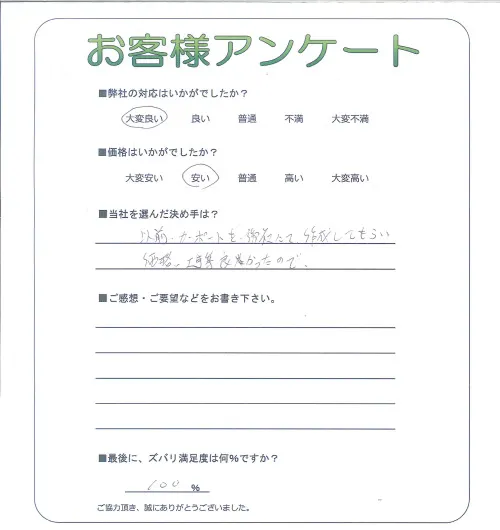 お客様アンケート
■弊社の対応はいかがでしたか？
大変良い 良い 普通 不満 大変不満
■価格はいかがでしたか？
大変安い 安い 普通 高い 大変高い
■当社を選んだ決め手は？
以前、カーポートを、御社にて作成してもらい
価格、工事等良かったので。
■ご感想・ご要望などをお書き下さい。
■最後に、ズバリ満足度は何%ですか？
100 %
ご協力頂き、誠にありがとうございました。